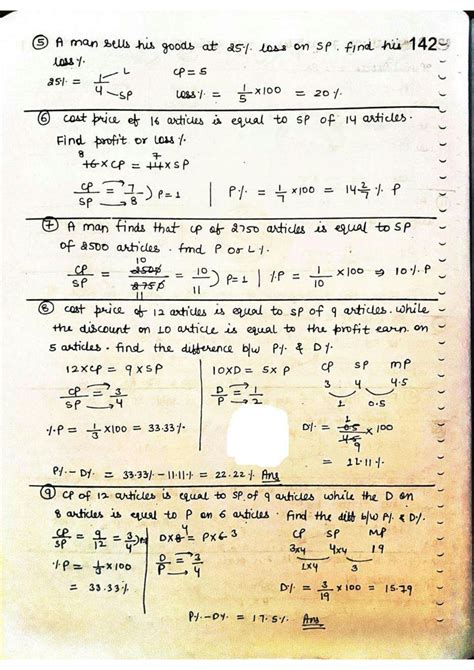 ⑤ A man sells his goods at 25% loss on SP. find his 1429
loss%
25% = 1/4 → L → SP CP = 5
loss% = 1/5 × 100 = 20%
⑥ cost price of 16 articles is equal to SP of 14 articles.
Find profit or loss%
8 7
16 × CP = 14 × SP
CP/SP = 7/8 ) P=1 | P% = 1/7 × 100 = 14 2/7 % P
⑦ A man finds that CP of 2750 articles is equal to SP
of 2500 articles. find P or L%.
CP/SP = 2500/2750 = 10/11 ) P=1 | %P = 1/10 × 100 ⇒ 10% P
10
11
⑧ cost price of 12 articles is equal to SP of 9 articles. while
the discount on 10 article is equal to the profit earn. on
5 articles. find the difference b/w P% & D%
12 × CP = 9 × SP 10 × D = 5 × P CP SP MP
3 4 4.5
CP/SP = 3/4 D/P = 1/2 1 0.5
%P = 1/3 × 100 = 33.33% D% = 0.5/4.5 × 100
= 11.11%
P% - D% = 33.33% - 11.11% = 22.22% Ans
⑨ CP of 12 articles is equal to SP of 9 articles while the D on
8 articles is equal to P on 6 articles. Find the diff b/w P% & D%.
CP/SP = 9/12 = 3/4 ) D × 8 4 = P × 6 3 CP SP MP
3×4 4×4 19
%P = 1/3 × 100 D/P = 3/4 1×4 3
= 33.33% D% = 3/19 × 100 = 15.79
P% - D% = 17.5% Ans